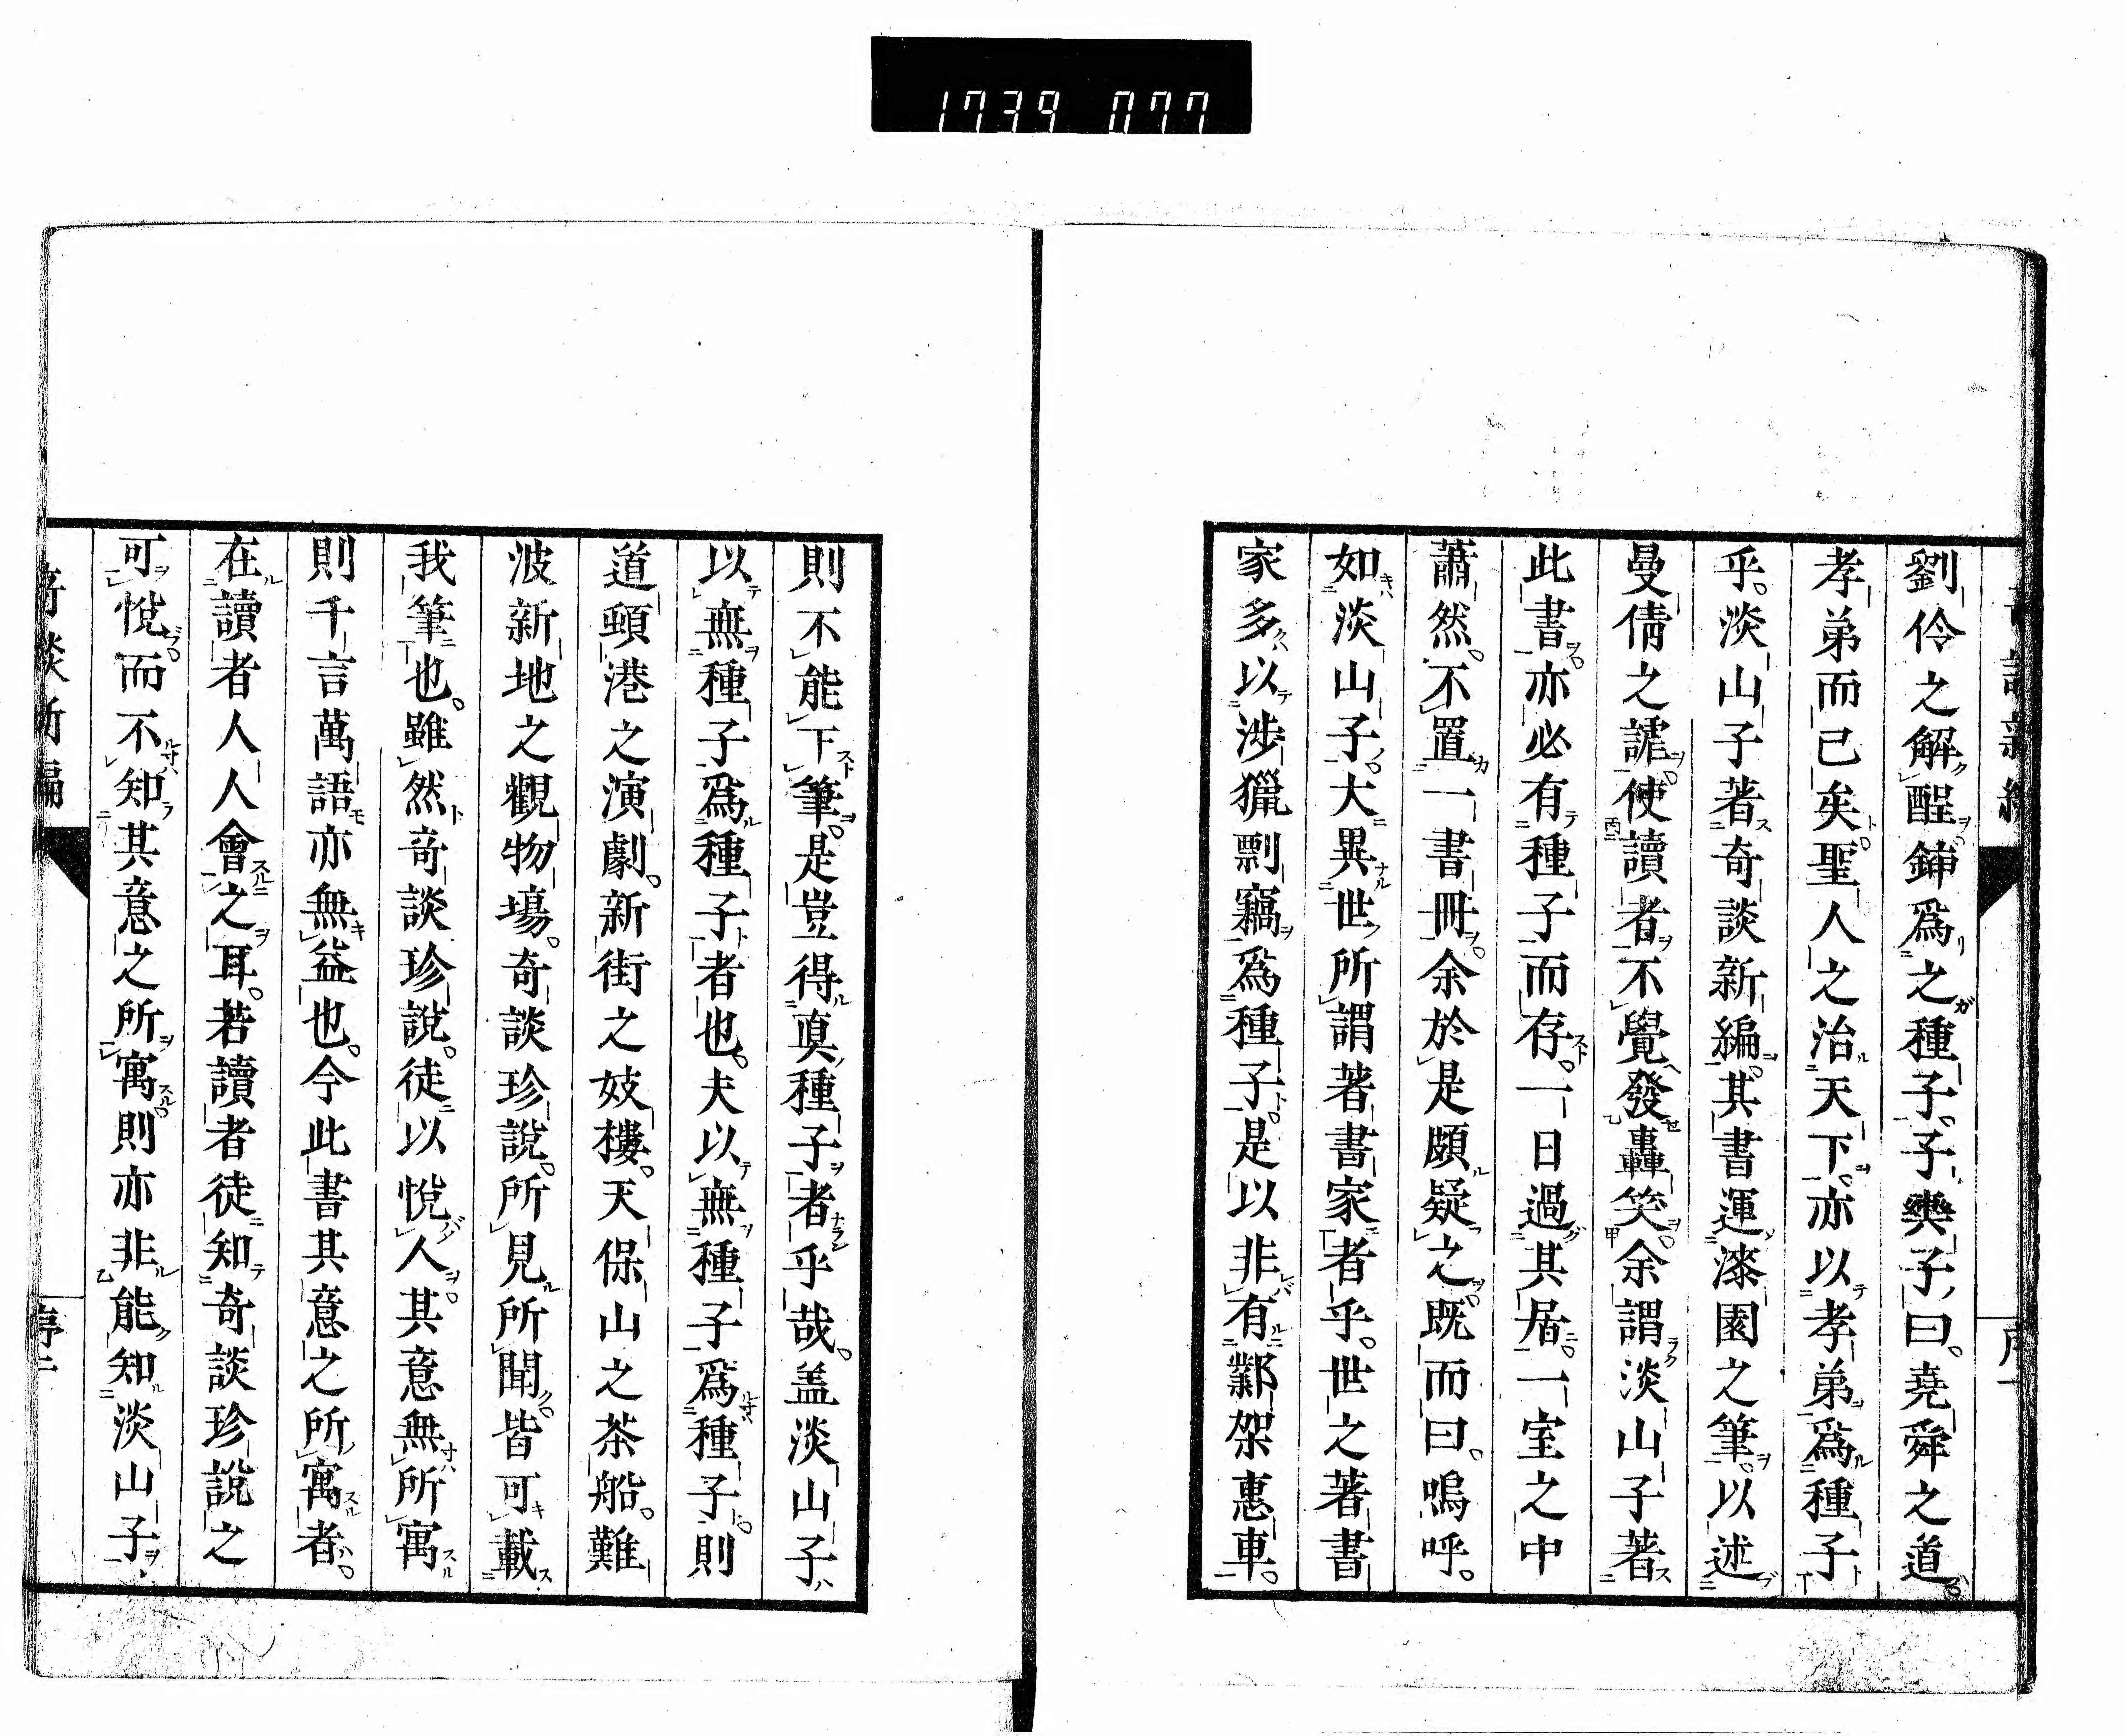 1739 077
劉伶之解酲鍤爲之種子。子輿子曰。堯舜之道
孝弟而已矣聖人之治天下。亦以孝弟爲種子
乎。淡山子著奇談新編。其書運漆園之筆。以述
曼倩之謔。使讀者不覺發轟笑。余謂淡山子著
此書。亦必有種子而存。一日過其居。一室之中
蕭然。不置一書冊。余於是頗疑之。既而曰。嗚呼。
如淡山子。大異世所謂著書家者乎。世之著書
家多以涉獵剽竊爲種子。是以非有鄴架惠車。
則不能下筆。是豈得真種子者乎哉。盖淡山子
以無種子爲種子者也。夫以無種子爲種子。則
道頓港之演劇。新街之妓樓。天保山之茶船。難
波新地之觀物場。奇談珍說。所見所聞。皆可載
我筆也。雖然奇談珍說。徒以悅人。其意無所寓
則千言萬語亦無益也。今此書其意之所寓者。
在讀者人人會之耳。若讀者徒知奇談珍說之
可悅。而不知其意之所寓。則亦非能知淡山子